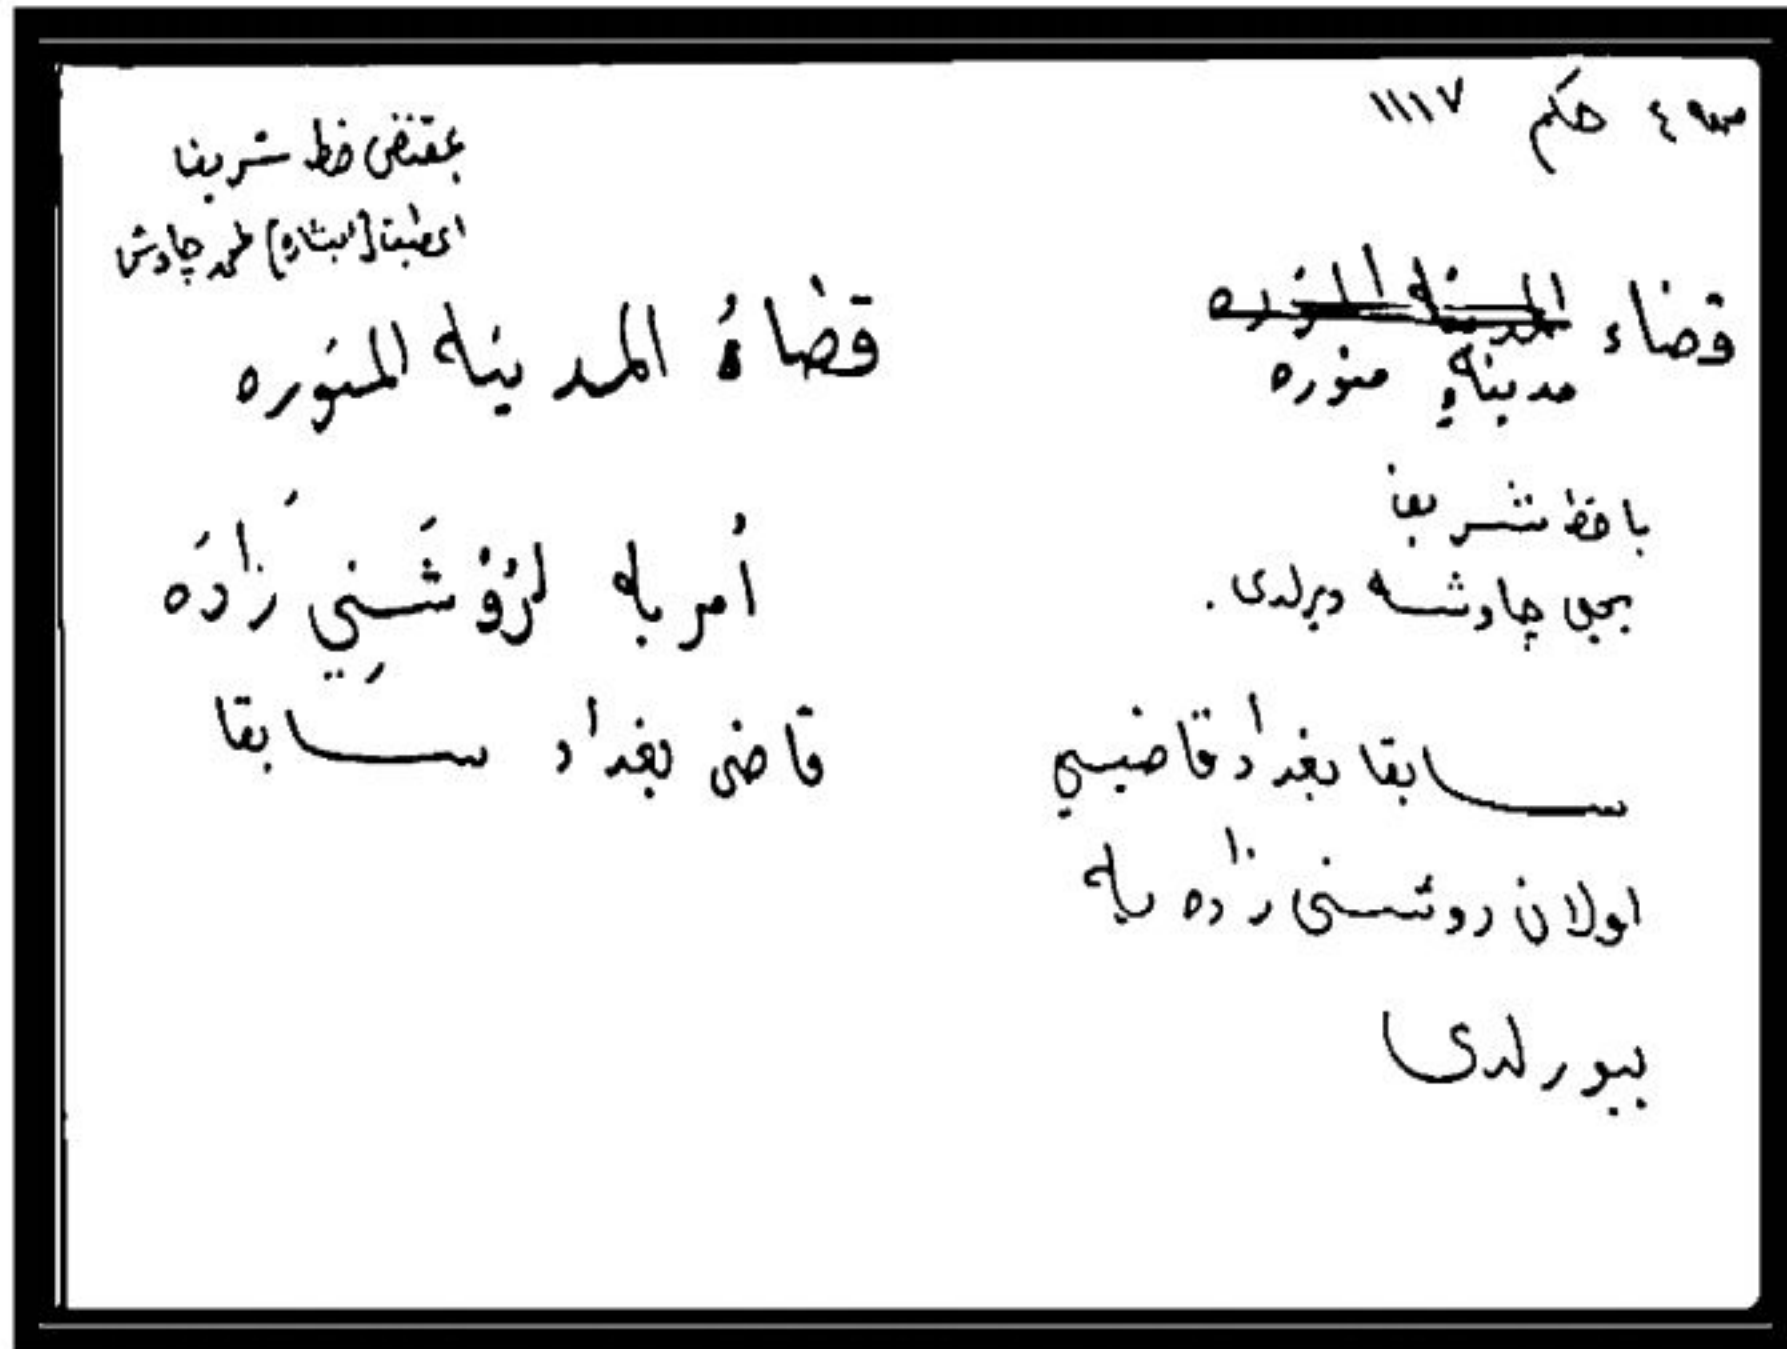 صـ ٤ حكم ١١١٧
قضاء المدينه المنوره
مدينهٔ منوره
با خط شريف
يحيى چاوشه ويرلدى.
سابقا بغداد قاضيسي
اولان روشنى زاده يه
بيورلدى
بمقتضى خط شريفا
چاوش
قضاهُ المدينه المنوره
أمر به لرُوْشَنِي زَادَه
قاضى بغداد سابقا